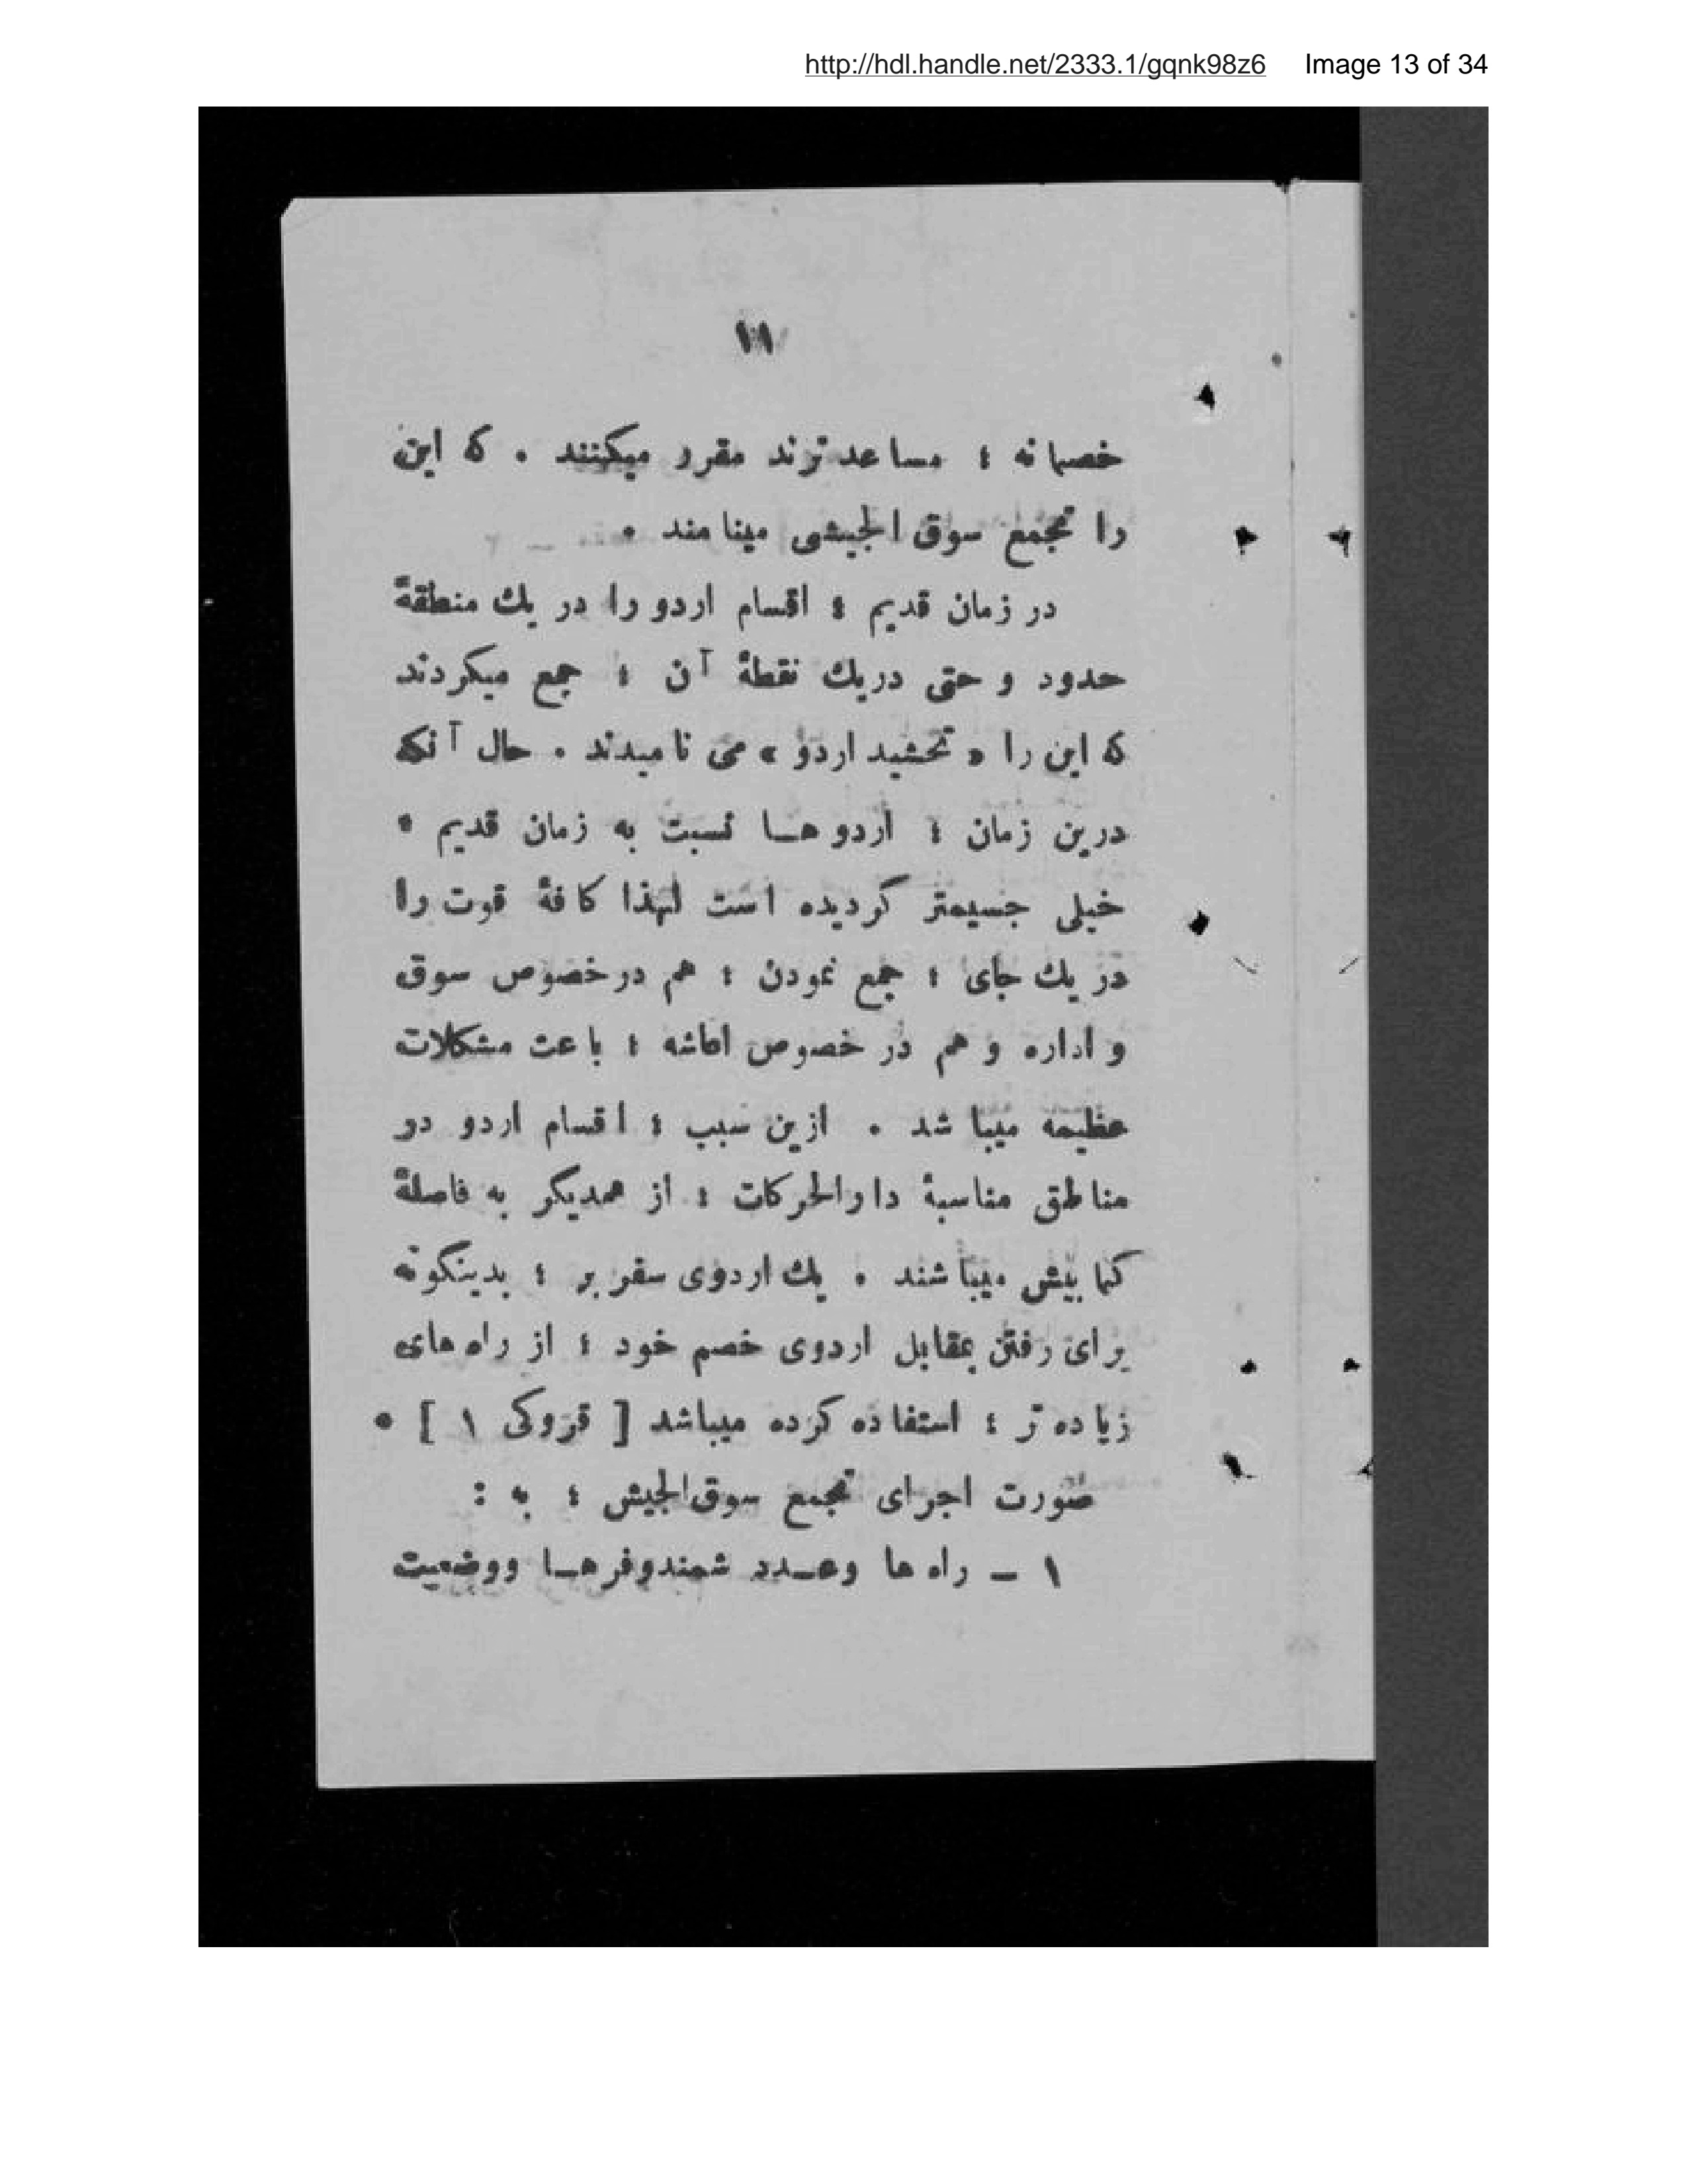 http://hdl.handle.net/2333.1/gqnk98z6 Image 13 of 34
۱۱
خصمانه ؛ مساعد ترند مقرر میکنند . که این
را تجمع سوق الجیشی مینامند .
در زمان قدیم ؛ اقسام اردو را در یك منطقهٔ
حدود و حتی در یك نقطهٔ آن ؛ جمع میکردند
که این را « تحشید اردو » می نامیدند . حال آنکه
درین زمان ؛ اردو هـا نسبت به زمان قدیم .
خیلی جسیمتر گردیده است لهذا کافهٔ قوت را
در یك جای ؛ جمع نمودن ؛ هم در خصوص سوق
و اداره و هم در خصوص اعاشه ؛ باعث مشکلات
عظیمه میباشد . ازین سبب ؛ اقسام اردو در
مناطق مناسبهٔ دارالحرکات ؛ از همدیگر به فاصلهٔ
کما بیش میباشند . یك اردوی سفر بر ؛ بدینگونه
برای رفتن بمقابل اردوی خصم خود ؛ از راه های
زیاده تر ؛ استفاده کرده میباشد [ قروکی ۱ ] .
صورت اجرای تجمع سوق‌الجیش ؛ به :
۱ ــ راه ها وعـدد شمندوفر هـا ووضعیت